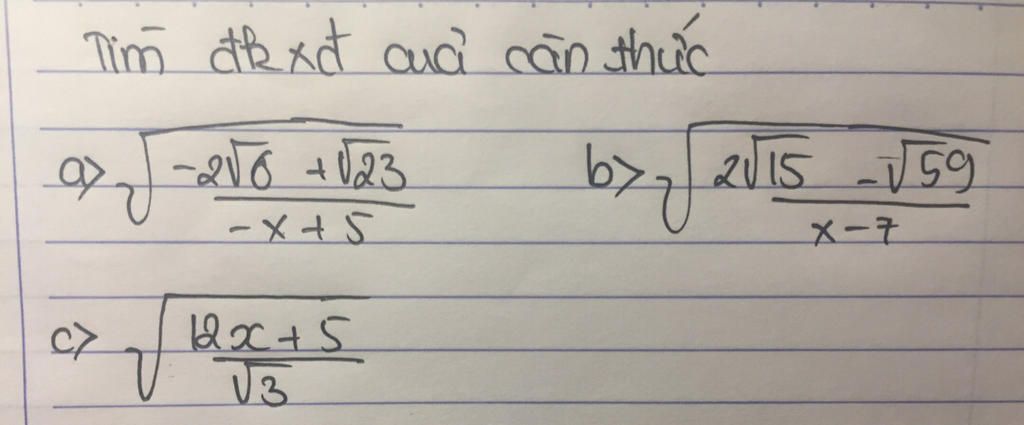 Tìm đkxđ cuả căn thức
a> √((-2√6 + √23)/(-x+5)) b> √((2√15 - √59)/(x-7))
c> √((12x+5)/√3)